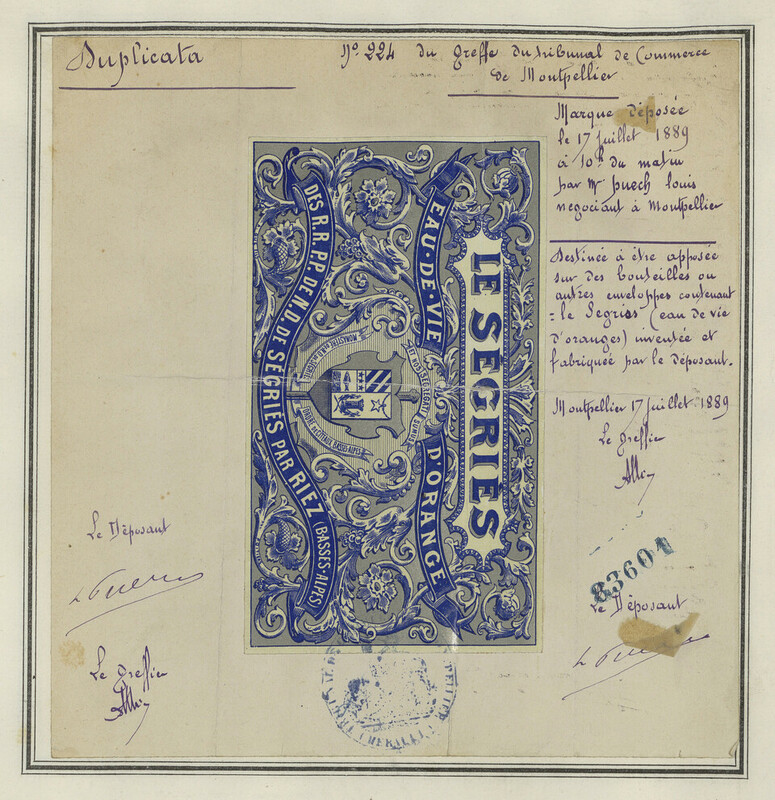 Duplicata
N° 224 du greffe du tribunal de Commerce
de Montpellier
Marque déposée
le 17 juillet 1889
à 10h du matin
par Mr puech louis
negociant à Montpellier
Destinée à être apposée
sur des bouteilles ou
autres enveloppes contenant
le Segriès (eau de vie
d'oranges) inventée et
fabriquée par le déposant.
Montpellier 17 juillet 1889
Le greffier
LE SEGRIÈS
EAU-DE-VIE D'ORANGE
ET VOS SEGREGATI SUMUS
DES R.R.P.P. DE N.D. DE SEGRIÈS PAR RIEZ (BASSES-ALPS)
Le Déposant
Le greffier
83601
Le Déposant